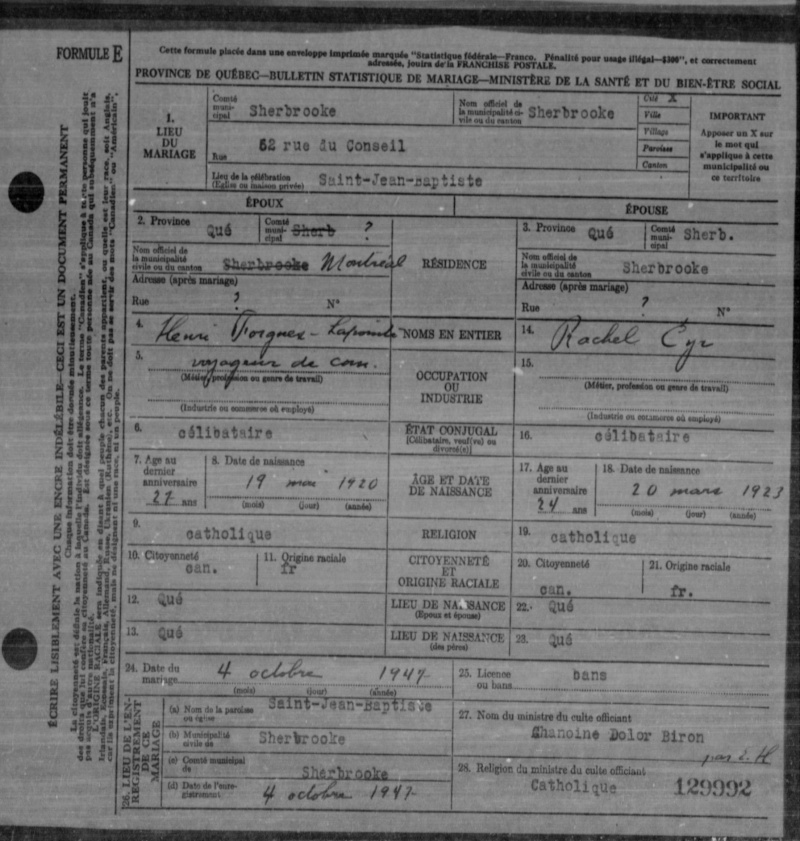 FORMULE E
Cette formule placée dans une enveloppe imprimée marquée "Statistique fédérale—Franco. Pénalité pour usage illégal—$300", et correctement
adressée, jouira de la FRANCHISE POSTALE.
PROVINCE DE QUÉBEC—BULLETIN STATISTIQUE DE MARIAGE—MINISTÈRE DE LA SANTÉ ET DU BIEN-ÊTRE SOCIAL
ÉCRIRE LISIBLEMENT AVEC UNE ENCRE INDÉLÉBILE—CECI EST UN DOCUMENT PERMANENT
Chaque information doit être donnée minutieusement.
1.
LIEU
DU
MARIAGE
Comté municipal Sherbrooke
Nom officiel de la municipalité civile ou du canton Sherbrooke
Rue 52 rue du Conseil
Lieu de la célébration
(Église ou maison privée) Saint-Jean-Baptiste
Cité X
Ville
Village
Paroisse
Canton
IMPORTANT
Apposer un X sur
le mot qui
s'applique à cette
municipalité ou
ce territoire
ÉPOUX
ÉPOUSE
2. Province Qué Comté municipal Sherb ?
RÉSIDENCE
3. Province Qué Comté municipal Sherb.
Nom officiel de
la municipalité
civile ou du canton Sherbrooke Montréal
Nom officiel de
la municipalité
civile ou du canton Sherbrooke
Adresse (après mariage)
Rue ? N°
Adresse (après mariage)
Rue ? N°
4. Henri Forgues-Lapointe
NOMS EN ENTIER
14. Rachel Cyr
5. voyageur de com.
(Métier, profession ou genre de travail)
(Industrie ou commerce où employé)
OCCUPATION
OU
INDUSTRIE
15.
(Métier, profession ou genre de travail)
(Industrie ou commerce où employé)
6. célibataire
ÉTAT CONJUGAL
[Célibataire, veuf(ve) ou
divorcé(e)]
16. célibataire
7. Âge au
dernier
anniversaire
27 ans
8. Date de naissance
19 mai 1920
(mois) (jour) (année)
ÂGE ET DATE
DE NAISSANCE
17. Âge au
dernier
anniversaire
24 ans
18. Date de naissance
20 mars 1923
(mois) (jour) (année)
9. catholique
RELIGION
19. catholique
10. Citoyenneté
can.
11. Origine raciale
fr
CITOYENNETÉ
ET
ORIGINE RACIALE
20. Citoyenneté
can.
21. Origine raciale
fr.
12. Qué
LIEU DE NAISSANCE
(Époux et épouse)
22. Qué
13. Qué
LIEU DE NAISSANCE
(des pères)
23. Qué
24. Date du
mariage 4 octobre 1947
(mois) (jour) (année)
25. Licence
ou bans bans
26. LIEU DE L'EN-
REGISTREMENT
DE CE
MARIAGE
(a) Nom de la paroisse
ou église Saint-Jean-Baptiste
(b) Municipalité
civile de Sherbrooke
(c) Comté municipal
de Sherbrooke
(d) Date de l'enre-
gistrement 4 octobre 1947
27. Nom du ministre du culte officiant
Chanoine Dolor Biron
28. Religion du ministre du culte officiant
Catholique
129992